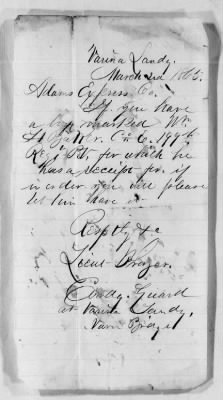 Varina Landg.
March 2nd 1865.
Adams Express Co.
If you have
a box marked Wm
Co. C. 199th
Rgt P.V. for which he
has a receipt for, if
in order you will please
let him have it
Resptly &c
Lieut
Comdg. Guard
at Varina Landg.